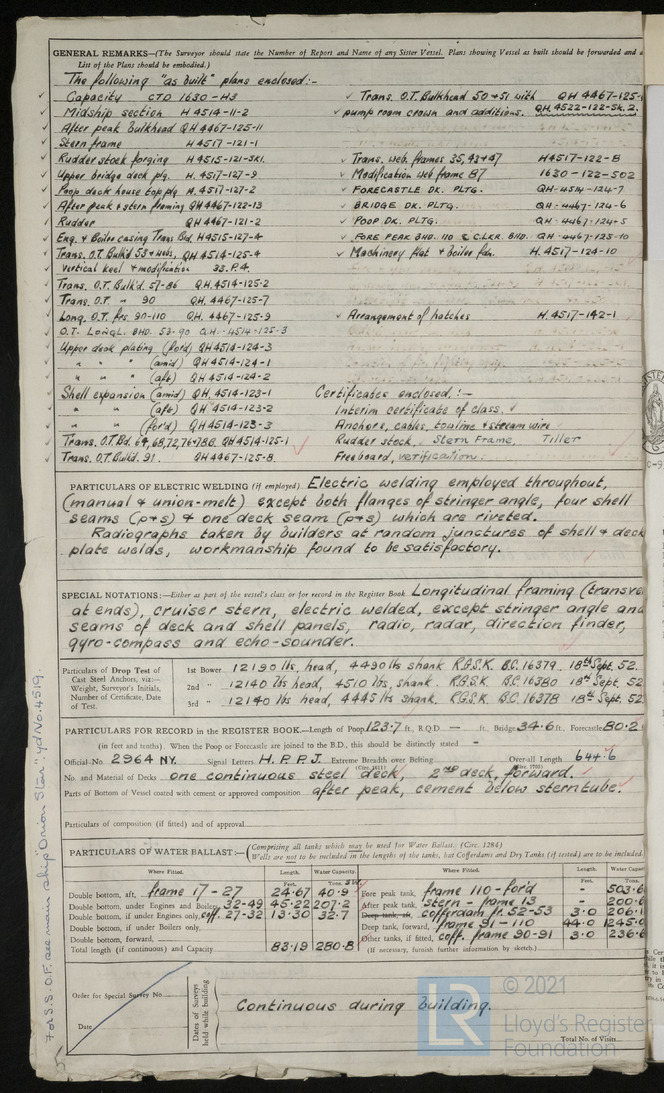 GENERAL REMARKS—(The Surveyor should state the Number of Report and Name of any Sister Vessel. Plans showing Vessel as built should be forwarded and a
List of the Plans should be embodied.)
The following "as built" plans enclosed:-
✓ Capacity CTD 1630-H3
✓ Midship section H 4514-11-2
✓ After peak bulkhead QH 4467-125-11
✓ Stern frame H 4517-121-1
✓ Rudder stock forging H4515-121-SK1.
✓ Upper bridge deck plg. H. 4517-127-9
✓ Poop deck house top plg. H. 4517-127-2
✓ After peak & stern framing QH 4467-122-13
✓ Rudder QH 4467-121-2
✓ Eng. & Boiler casing Trans Bhd. H4515-127-4
✓ Trans. O.T. Bulk'd 53 & webs, QH 4514-125-4
✓ Vertical keel & modification 33.P.4.
Trans. O.T. Bulk'd. 57-86 QH.4514-125-2
Trans. O.T. " 90 QH. 4467-125-7
Long. O.T. frs. 90-110 QH. 4467-125-9
O.T. LONGL. BHD. 53-90 QH.-4514-125-3
Upper deck plating (for'd) QH 4514-124-3
" " " (amid) QH 4514-124-1
" " " (aft) QH 4514-124-2
Shell expansion (amid) QH 4514-123-1
" " (aft) QH 4514-123-2
" " (for'd) QH 4514-123-3
Trans. O.T. Bd. 64,68,72,76&86. QH 4514-125-1
Trans. O.T. Bulk'd. 91. QH 4467-125-8.
✓ Trans. O.T. Bulkhead 50 & 51 with QH 4467-125-
✓ pump room crown and additions. QH 4522-122-SK.2.
✓ Trans. web. frames 35, 43 & 47 H4517-122-8
✓ Modification web frame 87 1630-122-502
✓ FORECASTLE DK. PLTG. QH-4514-124-7
✓ BRIDGE DK. PLTG. QH-4467-124-6
✓ POOP DK. PLTG. QH-4467-124-5
✓ FORE PEAK BHD. 110 & C.LKR. BHD. QH-4467-125-10
✓ Machinery flat & boiler fdn. H.4517-124-10
✓ Arrangement of hatches H. 4517-142-1
Certificates enclosed:-
Interim certificate of class. ✓
Anchors, cables, towline & stream wire
Rudder stock, Stern Frame, Tiller
Freeboard, verification.
PARTICULARS OF ELECTRIC WELDING (if employed) Electric welding employed throughout,
(manual & union-melt) except both flanges of stringer angle, four shell
seams (p&s) & one deck seam (p&s) which are riveted.
Radiographs taken by builders at random junctures of shell & deck
plate welds, workmanship found to be satisfactory.
SPECIAL NOTATIONS:—Either as part of the vessel's class or for record in the Register Book Longitudinal framing (transve
at ends), cruiser stern, electric welded, except stringer angle and
seams of deck and shell panels, radio, radar, direction finder,
gyro-compass and echo-sounder.
Particulars of Drop Test of
Cast Steel Anchors, viz:—
Weight, Surveyor's Initials,
Number of Certificate, Date
of Test.
1st Bower 12190 lbs, head, 4490 lbs shank R.G.S.K. B.C. 16379. 18th Sept. 52.
2nd " 12140 lbs head, 4510 lbs, shank. R.G.S.K. B.C. 16380 18th Sept. 52
3rd " 12140 lbs head, 4445 lbs shank. R.G.S.K. B.C. 16378 18th Sept. 52
PARTICULARS FOR RECORD in the REGISTER BOOK.—Length of Poop 123.7 ft., R.Q.D — ft. Bridge 34.6 ft. Forecastle 80.2
(in feet and tenths). When the Poop or Forecastle are joined to the B.D., this should be distinctly stated -
Official No. 2964 NY. Signal Letters H.P.P.J. Extreme Breadth over Belting Over-all Length 644.6
(Circ. 1611) (Circ. 1703)
No. and Material of Decks one continuous steel deck, 2nd deck, forward.
Parts of Bottom of Vessel coated with cement or approved composition after peak, cement below sterntube.
Particulars of composition (if fitted) and of approval
PARTICULARS OF WATER BALLAST:—(Comprising all tanks which may be used for Water Ballast. (Circ. 1284)
Wells are not to be included in the lengths of the tanks, but Cofferdams and Dry Tanks (if tested) are to be included
Where Fitted. Length. Water Capacity. Where Fitted. Length. Water Capac
Feet. Tons. S.W. Feet. Tons.
Double bottom, aft, frame 17-27 24.67 40.9 Fore peak tank, frame 110-for'd - 503.6
Double bottom, under Engines and Boilers 32-49 45.22 207.2 After peak tank, stern-frame 13 - 200.6
Double bottom, if under Engines only, coff. 27-32 13.30 32.7 Deep tank, aft, cofferdam fr. 52-53 3.0 206.1
Double bottom, if under Boilers only Deep tank, forward, frame 91-110 44.0 1245.0
Double bottom, forward, Other tanks, if fitted, coff. frame 90-91 3.0 236.6
Total length (if continuous) and Capacity 83.19 280.8 (If necessary, furnish further information by sketch.)
Order for Special Survey No.
Date
Dates of Surveys
held while building
Continuous during building.
Total No. of Visits
For S.S. O.F. see main ship "Orion Star" yd No. 4519.
© 2021
LR
Lloyd's Register
Foundation